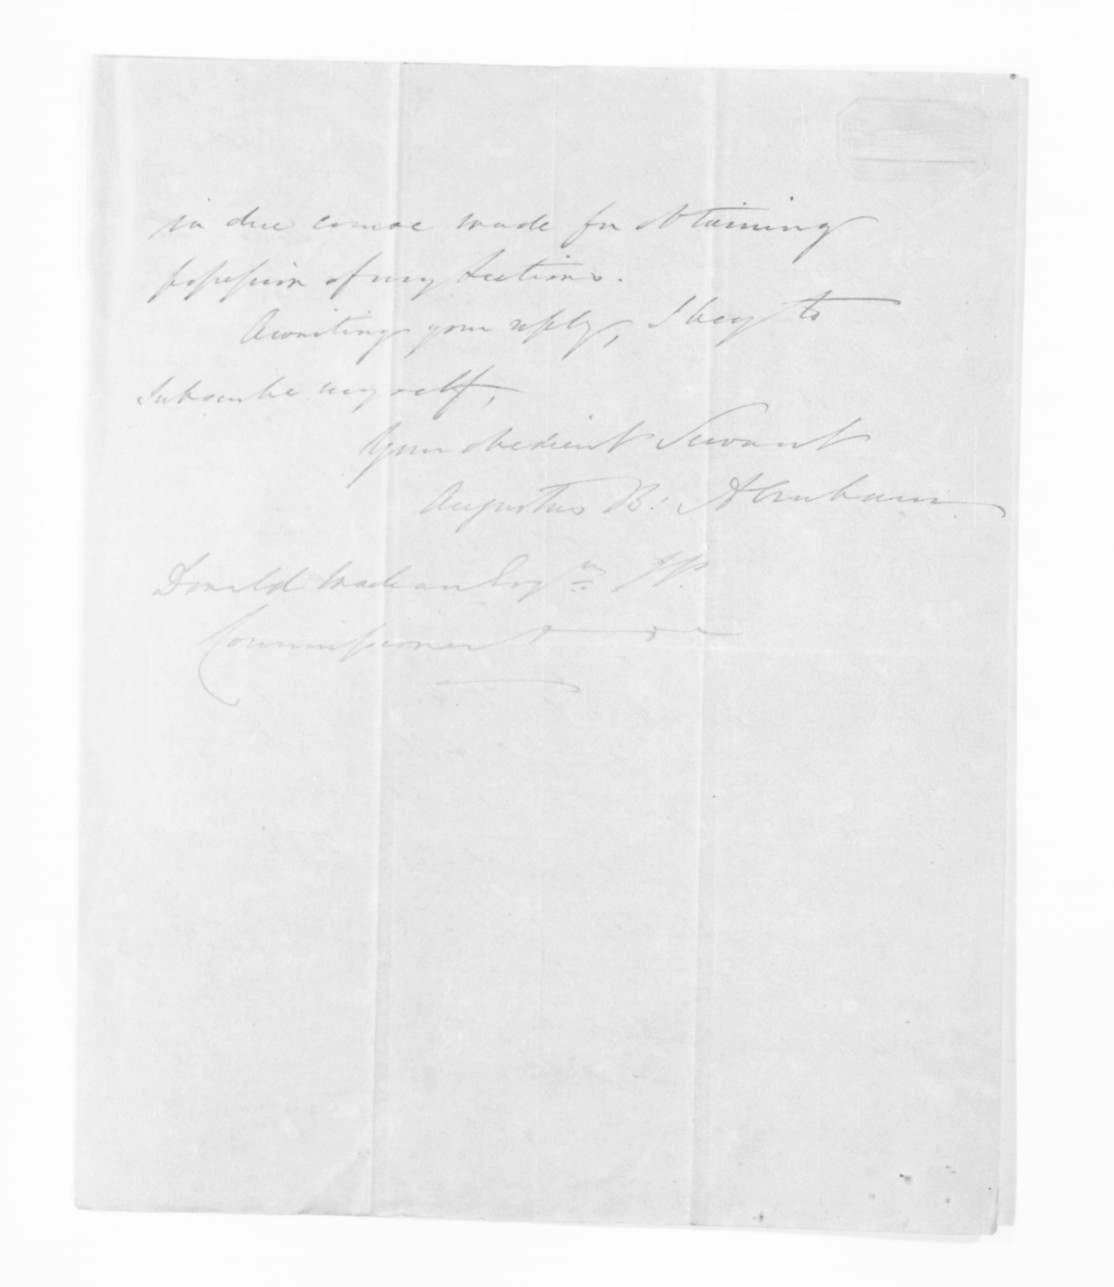 in due course made for obtaining
possession of my Sections.
Awaiting your reply, I beg to
subscribe myself,
Your obedient Servant
Augustus B. Abraham
Donald McLean Esqre J.P.
Commissioner &c